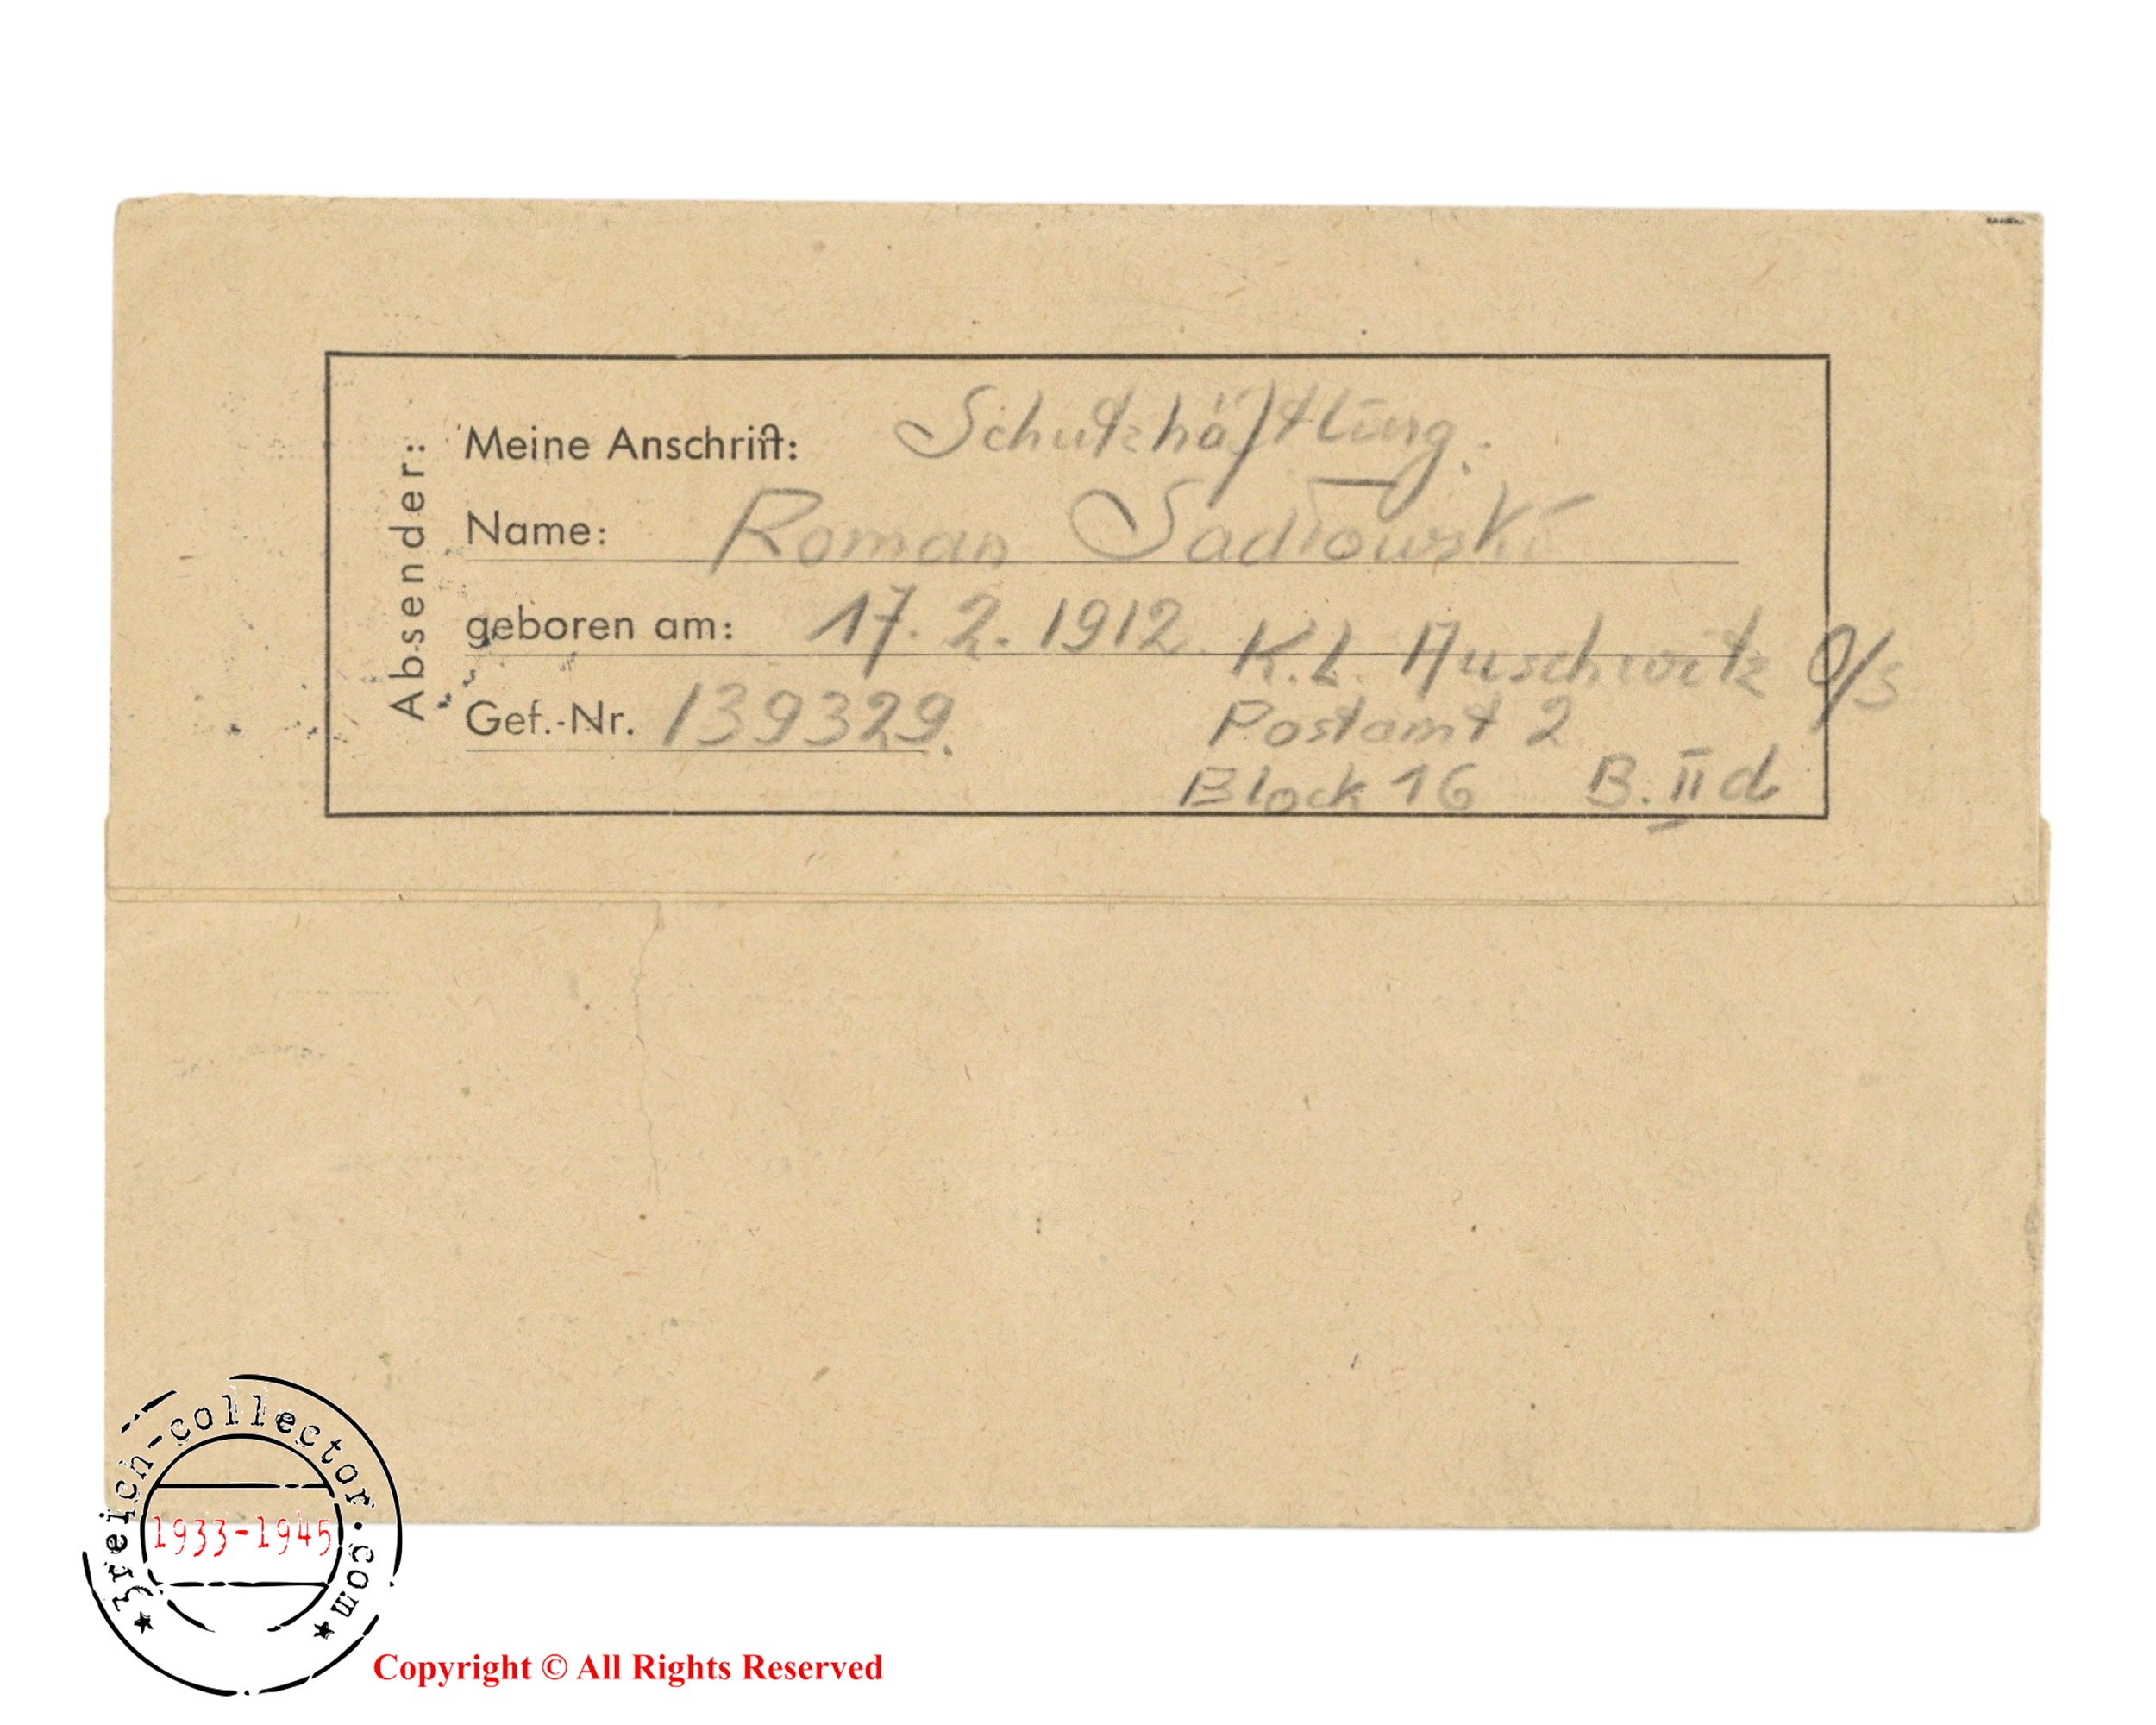 Absender:
Meine Anschrift: Schutzhäftling.
Name: Roman Sadlowski
geboren am: 17. 2. 1912 K.L. Auschwitz O/S
Gef.-Nr. 139329. Postamt 2
Block 16 B. II d
3reich-collector.com
1933-1945
Copyright © All Rights Reserved